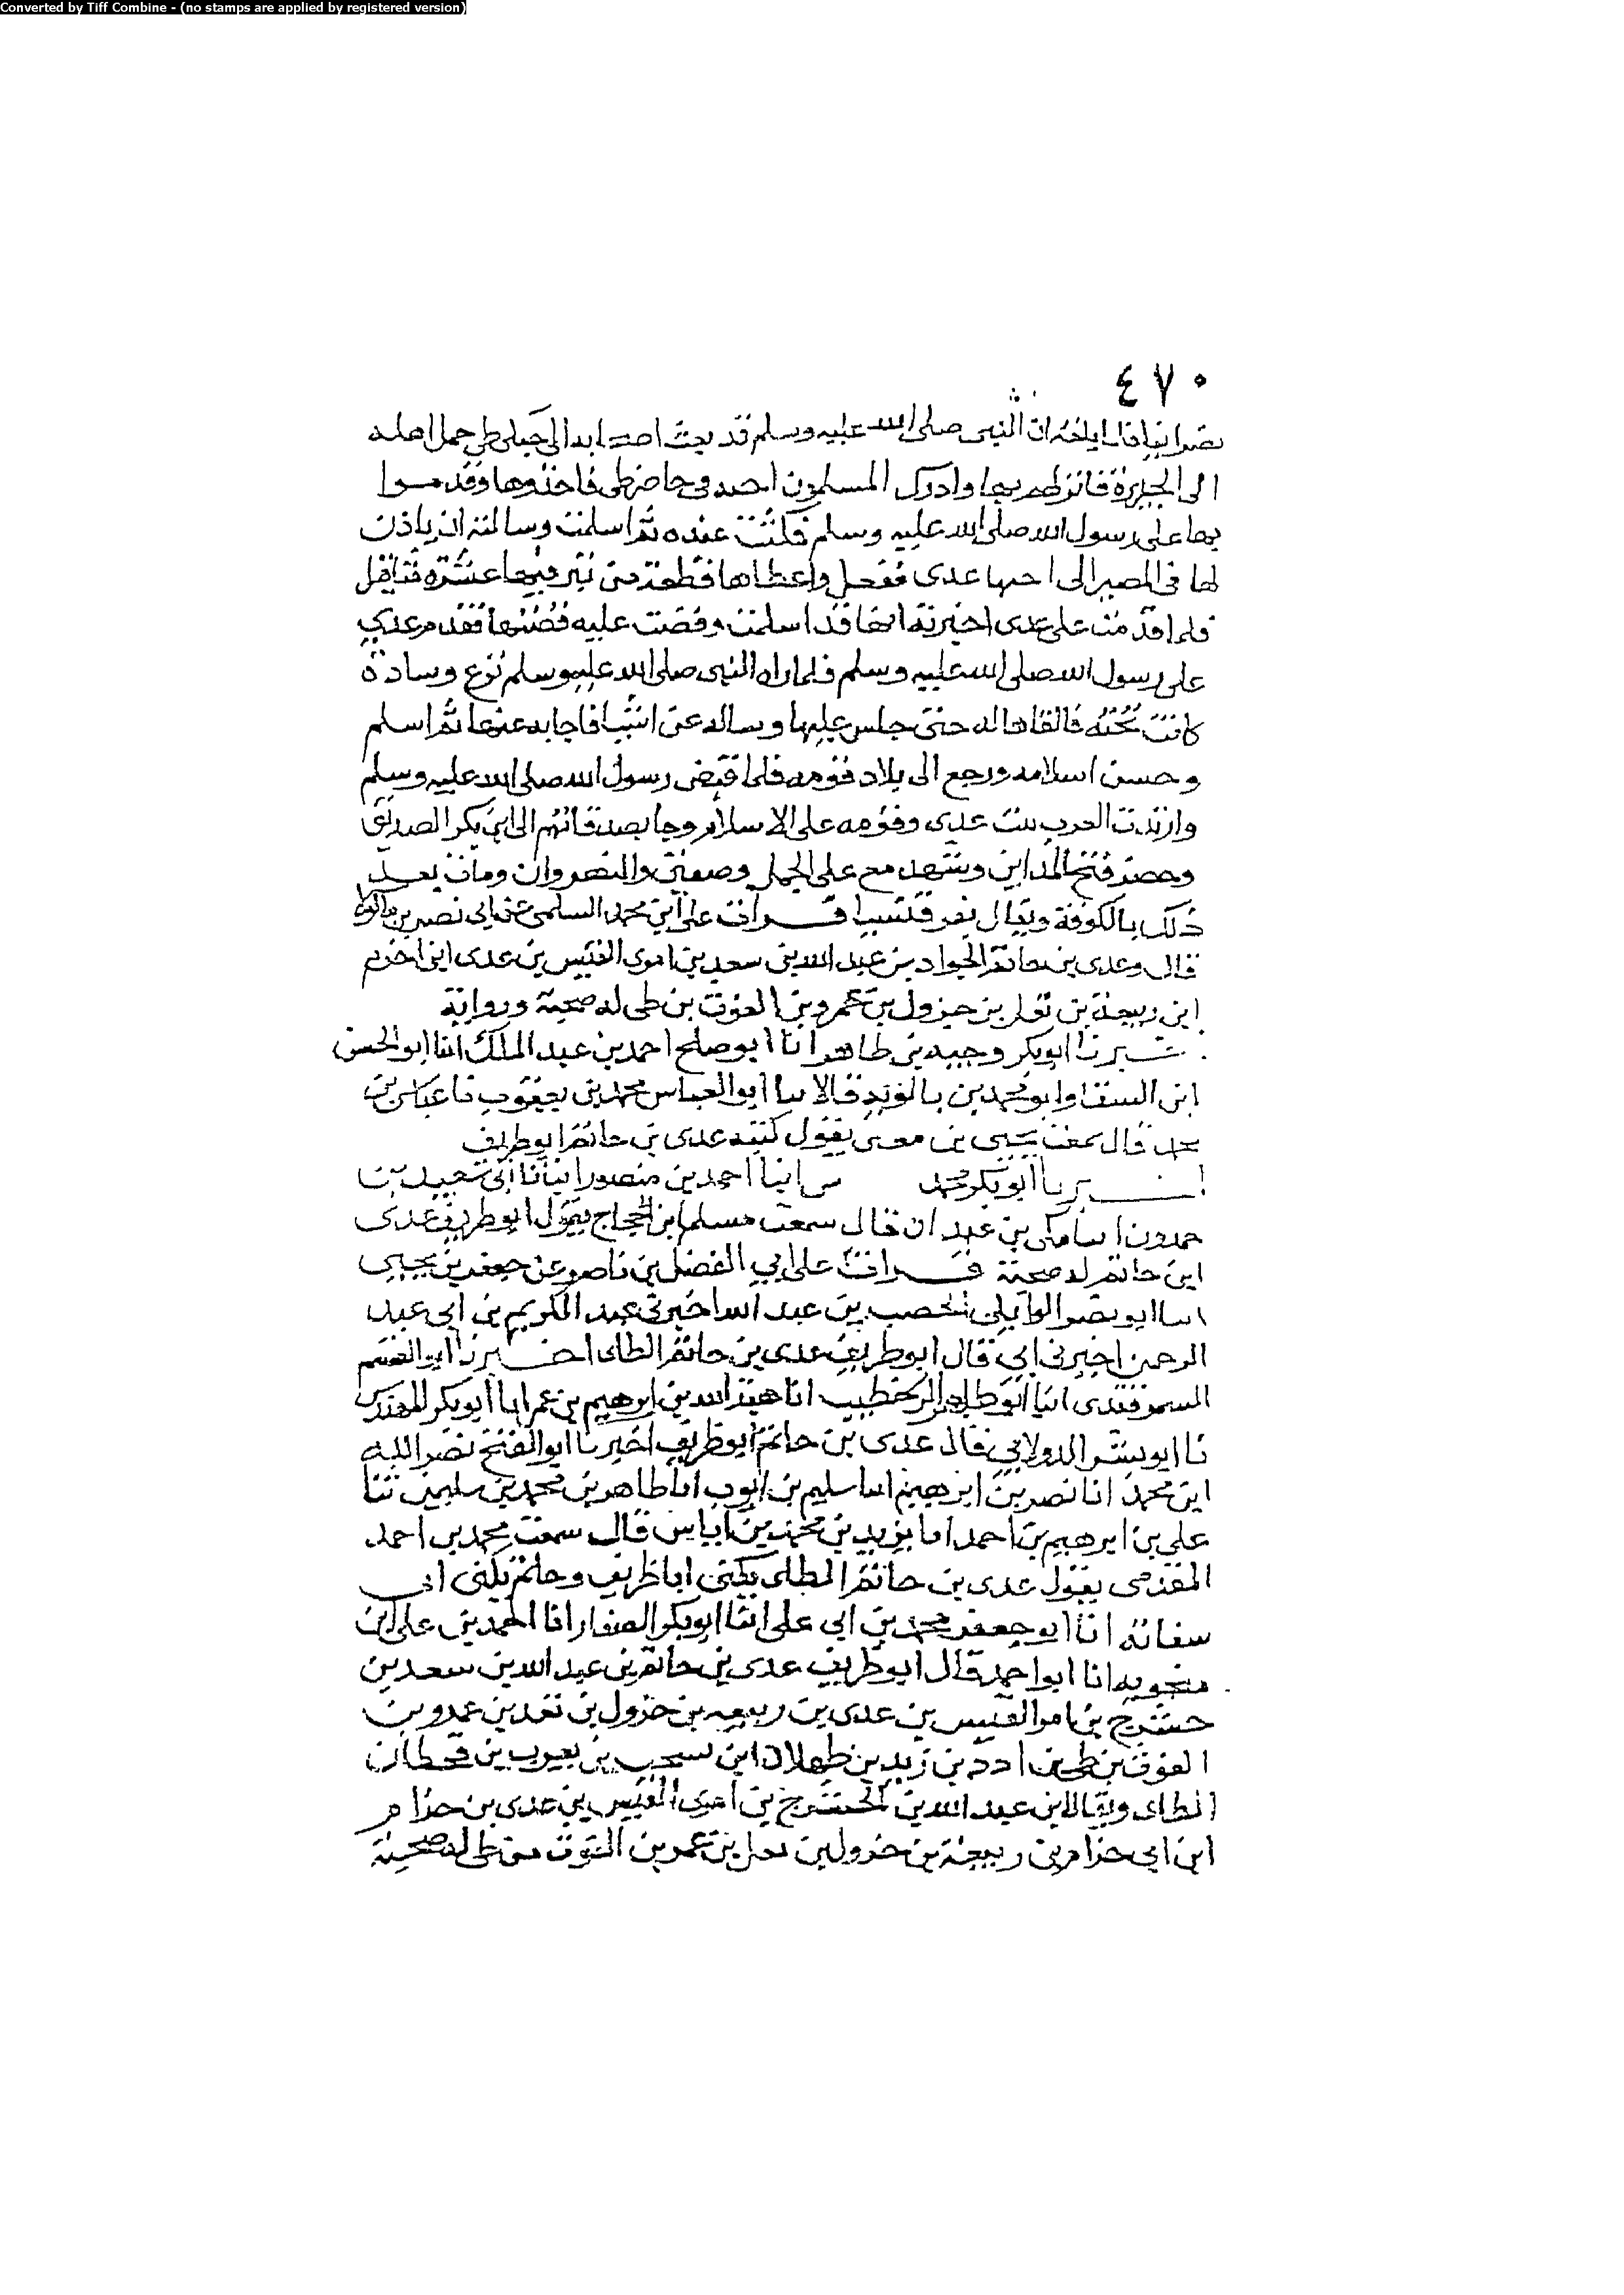 Converted by Tiff Combine - (no stamps are applied by registered version)
٤٧٠
نصرانيا فلما بلغه ان النبى صلى الله عليه وسلم قد بعث اصحابه الى جبلى طى حمل اهله
الى الجزيرة فانزلهم بها وادرك المسلمون اخته فى حاضر طى فاخذوها وقدموا
بها على رسول الله صلى الله عليه وسلم فمكثت عنده ثم اسلمت وسالته ان ياذن
لها فى المصير الى اخيها عدى ففعل واعطاها قطعة من تبر فيها عشرة مثاقيل
فلما قدمت على عدى اخبرته انها قد اسلمت وقصت عليه قصتها فقدم عدي
على رسول الله صلى الله عليه وسلم فلما راه النبى صلى الله عليه وسلم نزع وسادة
كانت تحته فالقاها له حتى جلس عليها وساله عن اشيا فاجابه عنها ثم اسلم
وحسن اسلامه ورجع الى بلاد قومه فلما قبض رسول الله صلى الله عليه وسلم
وارتدت العرب ثبت عدى وقومه على الاسلام وجا بصدقاتهم الى ابى بكر الصديق
وحضر فتح المداين وشهد مع على الجمل وصفين والنهروان ومات بعد
ذلك بالكوفة ويقال بقرقيسيا قرات على ابى محمد السلمى عن ابى نصر بن ماكولا
قال وعدى بن حاتم الجواد بن عبد الله بن سعد بن امرى القيس بن عدى ابن اخزم
ابن ربيعة بن ثعل بن جرول بن عمرو بن الغوث بن طى له صحبة ورواية
اخبرنا ابو بكر وجيه بن طاهر انا ابو صلح احمد بن عبد الملك انبا ابو الحسن
ابن السقا وابو محمد بن بالويه قالا نبا ابو العباس محمد بن يعقوب نا عباس بن
محمد قال سمعت يحيى بن معين يقول كنية عدى بن حاتم ابو طريف
اخبرنا ابو بكر محمد انبا احمد بن منصور انبانا ابى سعيد بن
حمدون انا مكى بن عبدان قال سمعت مسلم ابن الحجاج يقول ابو طريف عدى
ابن حاتم له صحبة قرات على ابى الفضل بن ناصر عن جعفر بن يحيى
انا ابو نصر الوايلى الخصيب بن عبد الله اخبرنى عبد الكريم بن ابى عبد
الرحمن اخبرنى ابى قال ابو طريف عدى بن حاتم الطاى اخبرنا ابو القسم
السمرقندى انبا ابو طاهر الخطيب انا هبة الله بن ابرهيم بن عمر انا ابو بكر المهندس
نا ابو بشر الدولابي قال عدى بن حاتم ابو طريف اخبرنا ابو الفتح نصر الله
ابن محمد انا نصر بن ابرهيم انا سليم بن ايوب انا طاهر بن محمد بن سليمن ثنا
على بن ابرهيم بن احمد انا يزيد بن محمد بن اياس قال سمعت محمد بن احمد
المقدمى يقول عدى بن حاتم الطاى يكنى ابا طريف وحاتم يكنى ابى
سفانة انا ابو جعفر محمد بن ابى على انبا ابو بكر الصفار انا احمد بن على ابن
منجويه انا ابو احمد قال ابو طريف عدى بن حاتم بن عبد الله بن سعد بن
حشرج بن امر القيس بن عدى بن ربيعه بن جرول بن ثعل بن عمرو بن
الغوث بن طى بن ادد بن زيد بن كهلان ابن يشجب بن يعرب بن قحطان
الطاى ويقال ابن عبد الله بن الحشرج بن امرى القيس بن عدى بن حزام
ابن ابى حزام بن ربيعة بن جرول بن ثعل بن عمر بن الغوث من طى له صحبة